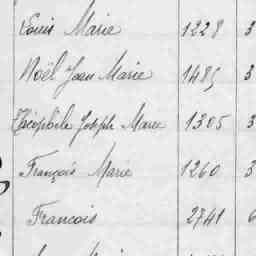 Louis Marie 1228 3
Noël Jean Marie 1485 3
Théophile Joseph Marie 1305 3
François Marie 1260 3
Francois 2741 6